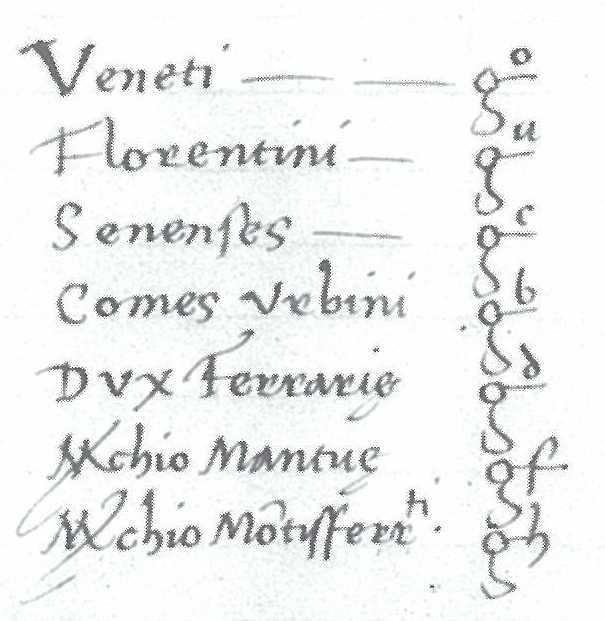 Veneti — — go
Florentini — gu
Senenses — gc
Comes Vrbini gb
Dvx Ferrarie gd
Mchio Mantue gf
Mchio Mōtisferrti. gh